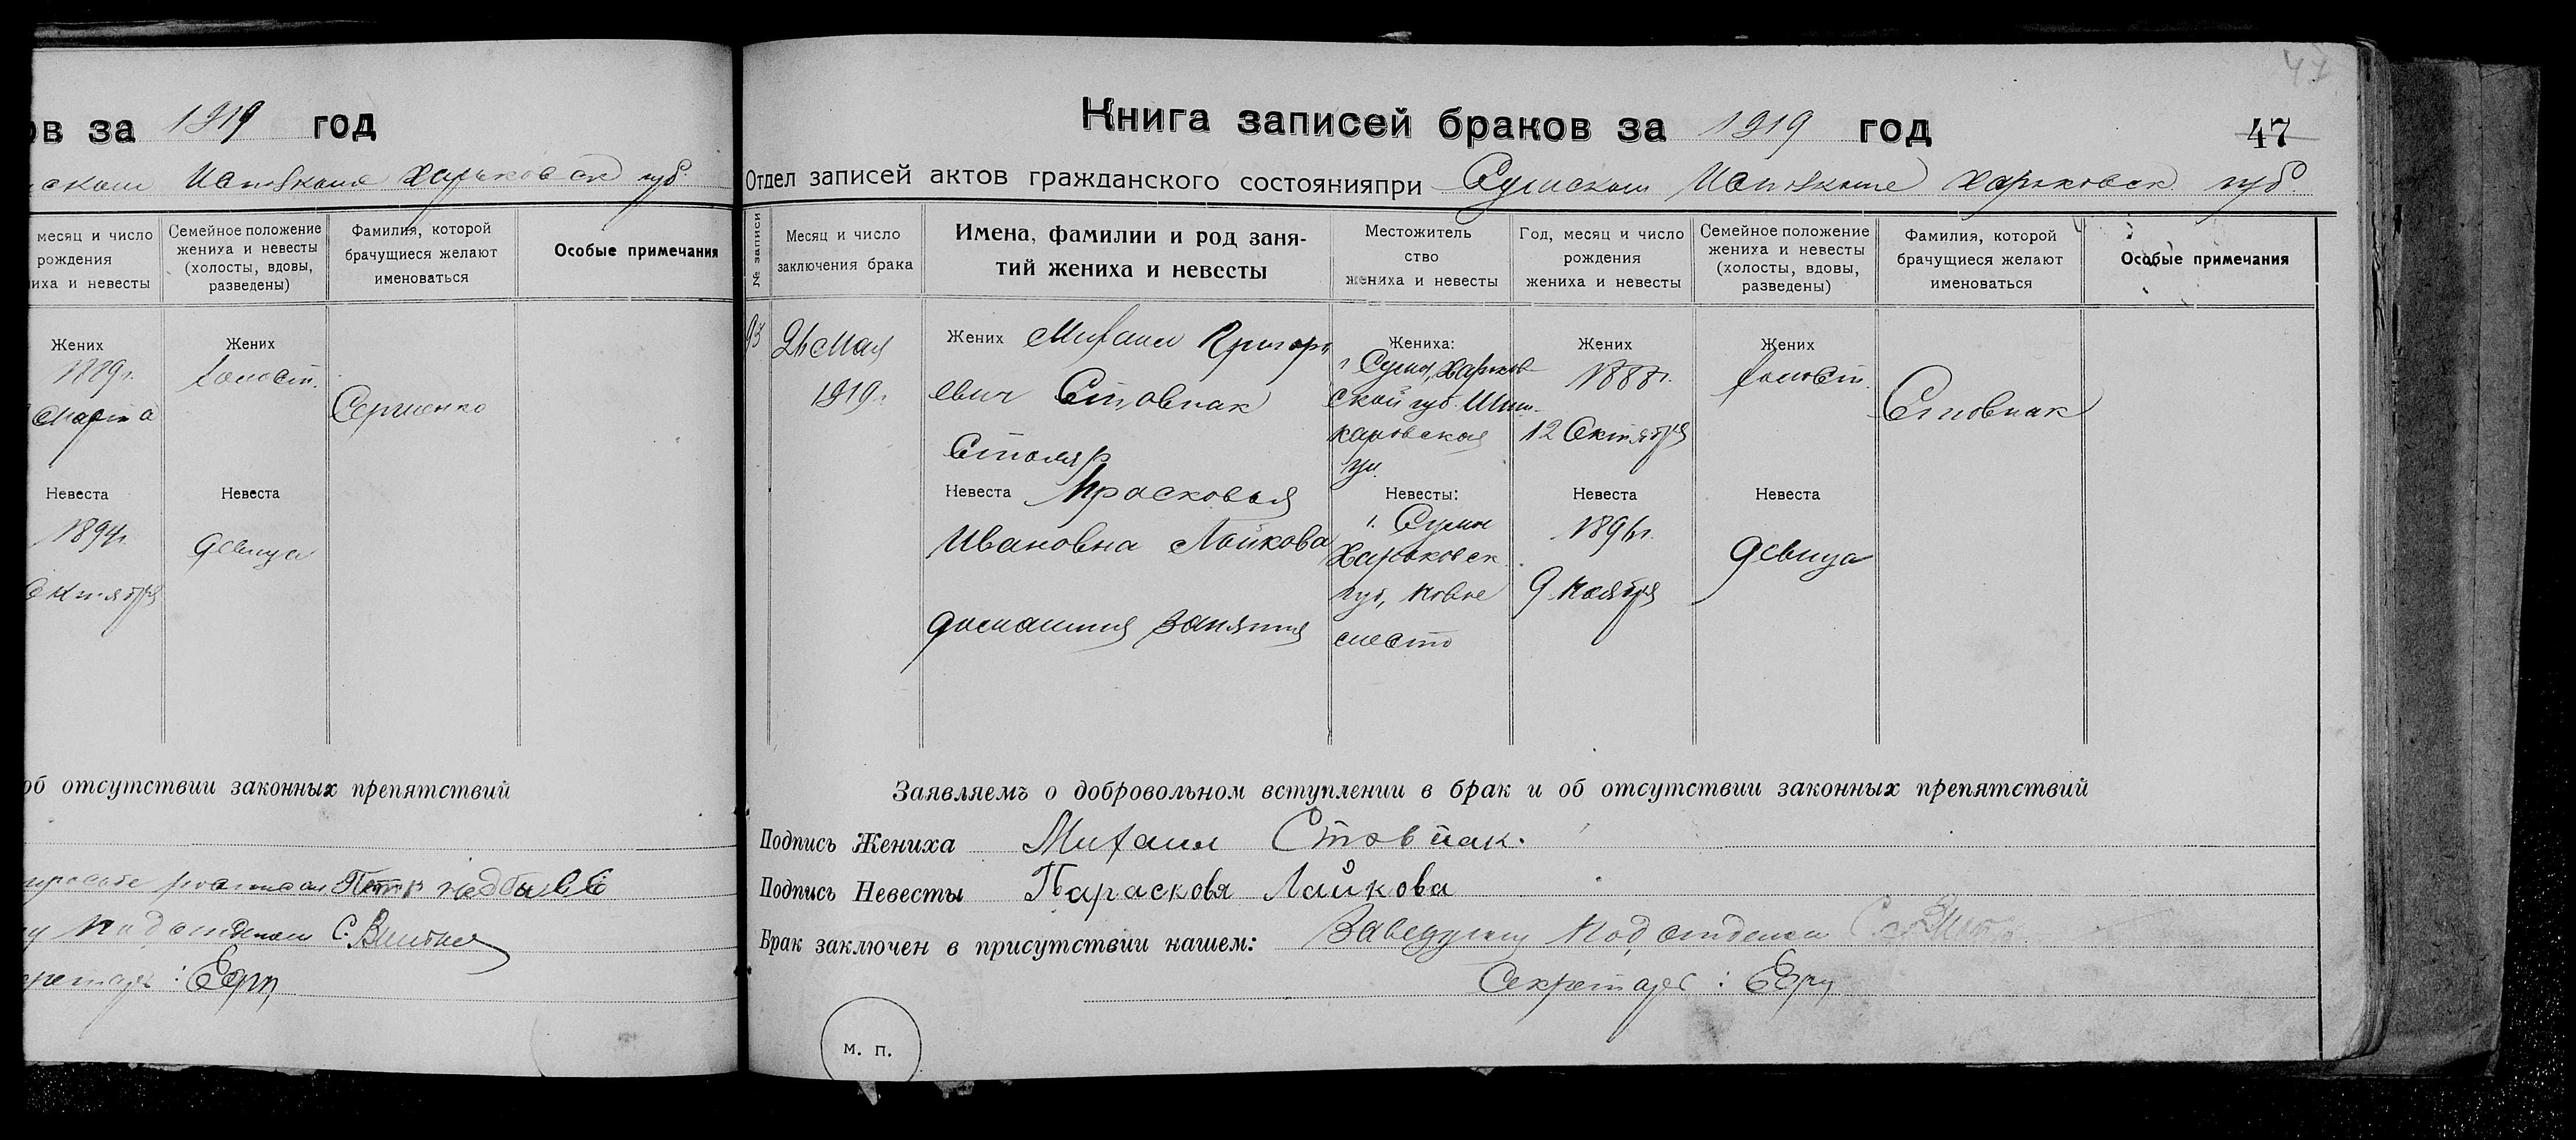 ов за 1919 год
ском Исполкоме Харьковск губ.
месяц и число
рождения
иха и невесты
Семейное положение
жениха и невесты
(холосты, вдовы,
разведены)
Фамилия, которой
брачущиеся желают
именоваться
Особые примечания
Жених
1889г.
Марта
Жених
Холост.
Сергиенко
Невеста
Октября
Невеста
девица
об отсутствии законных препятствий
Подотделом
47
Книга записей браков за 1919 год
47
Отдел записей актов гражданского состоянияпри Сумском Исполкоме Харьковск. губ.
№ записи
Месяц и число
заключения брака
Имена, фамилии и род заня-
тий жениха и невесты
Местожитель
ство
жениха и невесты
Год, месяц и число
рождения
жениха и невесты
Семейное положение
жениха и невесты
(холосты, вдовы,
разведены)
Фамилия, которой
брачущиеся желают
именоваться
Особые примечания
26 Мая
1919г.
Жених Михаил Григорь
евич Стовпак
Столяр
Невеста Прасковья
Ивановна Лайкова
домашния занятия
Жениха:
г Сумы, Харьков
ской губ.
ул.
Невесты:
г. Сумы
Харьковск
губ, Новое
место
Жених
1888г.
12 Октября
Невеста
1896г.
9 Ноября
Жених
Холост.
Невеста
девица
Стовпак
Заявляемъ о добровольном вступлении в брак и об отсутствии законных препятствий
Подпись Жениха Михаил Стовпак.
Подпись Невесты Парасковя Лайкова
Брак заключен в присутствии нашем: Заведущий Подотделом
Секретарь :
м. п.